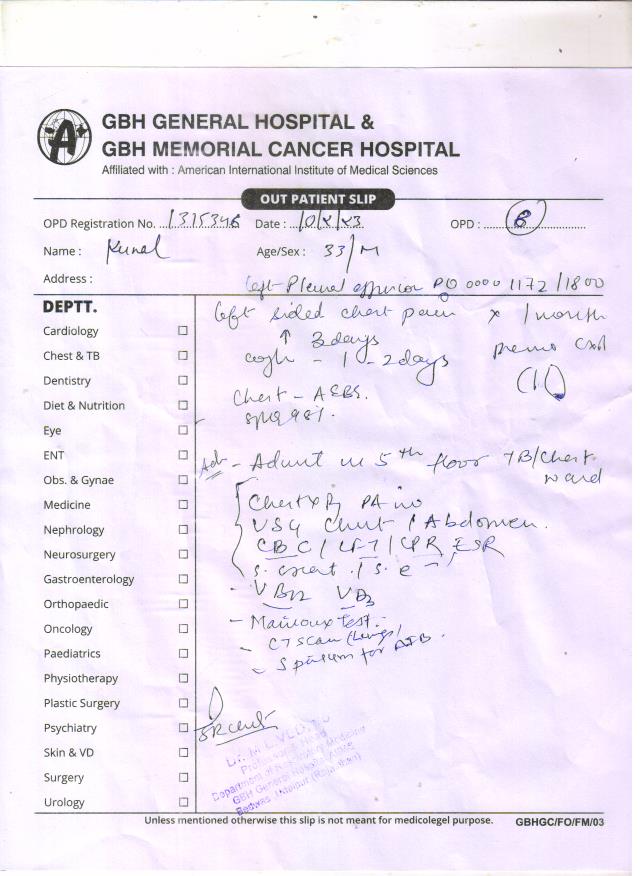 GBH GENERAL HOSPITAL &
GBH MEMORIAL CANCER HOSPITAL
Affiliated with : American International Institute of Medical Sciences
OUT PATIENT SLIP
OPD Registration No. 1315346 Date : OPD :
Name : Kunal Age/Sex : 33/M
Address :
left Pleural effusion PO 00001172/1800
DEPTT.
left sided chest pain x 1 month
↑ 3 days
Cardiology
cough - 1 - 2 days
Chest & TB
Dentistry
Chest - AEBS.
Diet & Nutrition
SpO2 98%.
Eye
ENT
Adv - Admit in 5th floor TB/Chest
ward
Obs. & Gynae
Medicine
Chest X Ray PA
Nephrology
USG Chest / Abdomen.
Neurosurgery
CBC / LFT / ESR
Gastroenterology
S. creat. / S. e -
Orthopaedic
- V B12 V D3
Oncology
- Mantoux test.
Paediatrics
- CT scan (Lungs)
Physiotherapy
- Sputum for AFB.
Plastic Surgery
Psychiatry
Skin & VD
Department of Respiratory Medicine
Surgery
GBH General Hospital
Bedwas, Udaipur (Rajasthan)
Urology
Unless mentioned otherwise this slip is not meant for medicolegel purpose. GBHGC/FO/FM/03